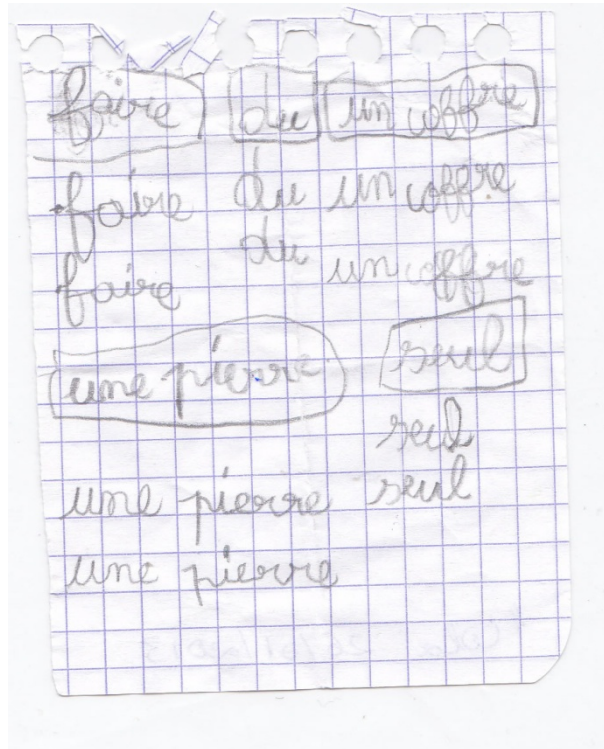 faire du un coffre
faire du un coffre
faire du un coffre
une pierre seul
seul
une pierre seul
une pierre